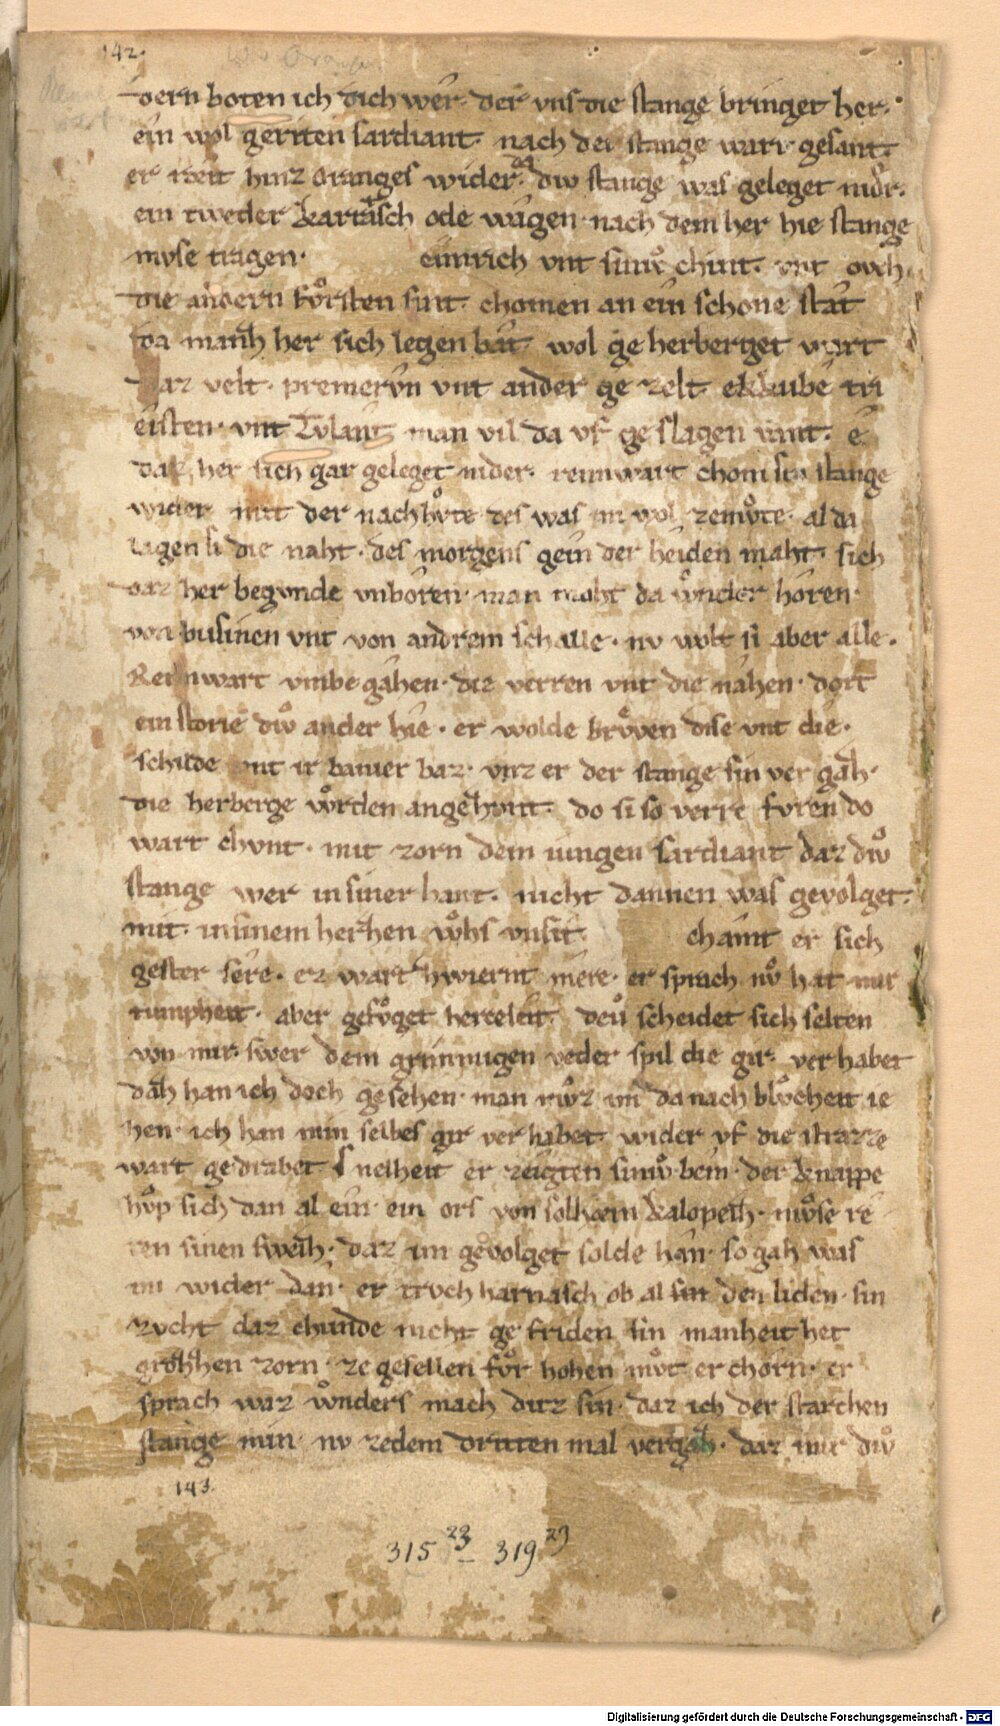 142.
dern boten ich dich wer. der vns die stange bringet her.
ein wol geriten sardiant. nach der stange wart gesant.
er reit hinz Oranges wider. da diͮ stange was geleget nider.
ein tweder karrasch ode wagen. nach dem her hie stange
mvse tragen. einrich vnt siniͮ chint. vnt ovch
die andern fuͦrsten sint. chomen an ein schone stat
da manh her sich legen bat. wol ge herberget wart
daz velt. premervn vnt ander ge zelt. ekkube tri
eisten. vnt Tvlant man vil da vf ge slagen vint. e
daz her sich gar geleget nider. rennwart chom sin stange
wider mit der nachhuͦte des was im wol zemuͦte. al da
lagen si die naht. des morgens gein der heiden maht. sich
daz her begvnde vnboren. man moht da wͦnder horen.
von businen vnt von andrem schalle. nv wolt si aber alle.
Rennwart vmbe gahen. die verren vnt die nahen. dort
ein storie diͮ ander hie. er wolde bruͦven dise vnt die.
schilde vnt ir banier baz. vnz er der stange sin ver gah.
die herberge wͦrden angehvnt. do si so verre fvren do
wart chvnt. mit zorn dem iungen sardiant daz diͮ
stange wer in siner hant. nicht dannen was gevolget.
mit. in sinem herhen wͦhs vnsit. chaint er sich
gester sere. ez wart hwiernt mere. er sprach nv hat mir
tumpheit. aber gefuͦget herceleit. deu scheidet sich selten
von mir. swer dem grimmigen veder spil die gir. verhabet
dah han ich doch gesehen. man muͦz im da nach bloͮcheit ie
hen. ich han min selbes gir verhabet. wider vf die strazze
wart gedrabet. snelheit er zeigten siniͮ bein. der knappe
huͦp sich dan al ein. ein ors von solhem kalopeih. muͦse re
ren sinen sweih. daz im gevolget solde han. so gah was
im wider dan. er trvch harnasch ob al sin den liden. sin
zvcht daz chunde nicht ge friden sin manheit het
grohhen zorn. ze gesellen fuͦr hohen muͦt er chorn. er
sprach waz wͦnders mach ditz sin. daz ich der starchen
stange min. nv zedem dritten mal vergah. daz mir diͮ
143.
315 23 – 319 23
Digitalisierung gefördert durch die Deutsche Forschungsgemeinschaft - DFG